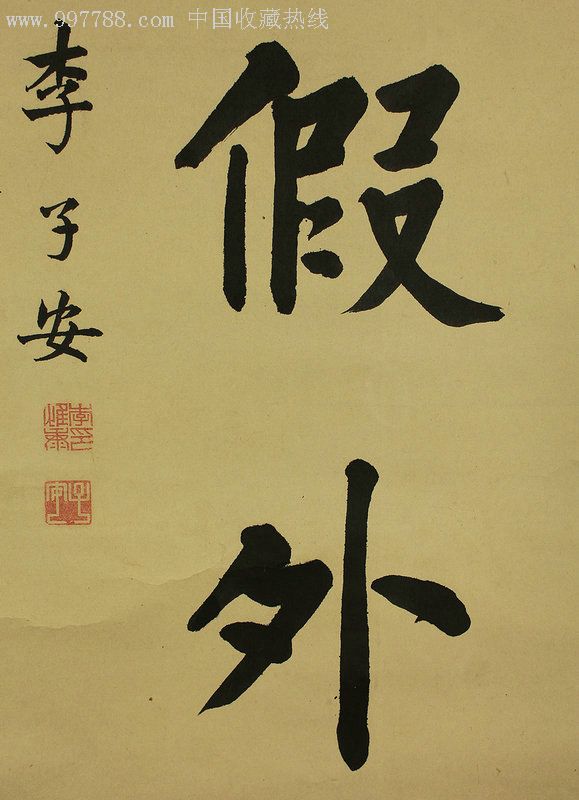 www.997788.com 中国收藏热线
假外
李子安